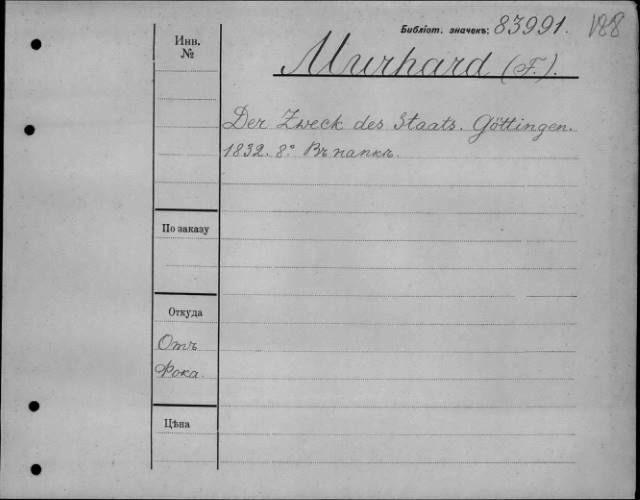 Библіот. значекъ: 83991. 188
Инв. №
Murhard (F.).
Der Zweck des Staats. Göttingen.
1832. 8.° Въ папкѣ.
По заказу
Откуда
Отъ
Фока.
Цѣна